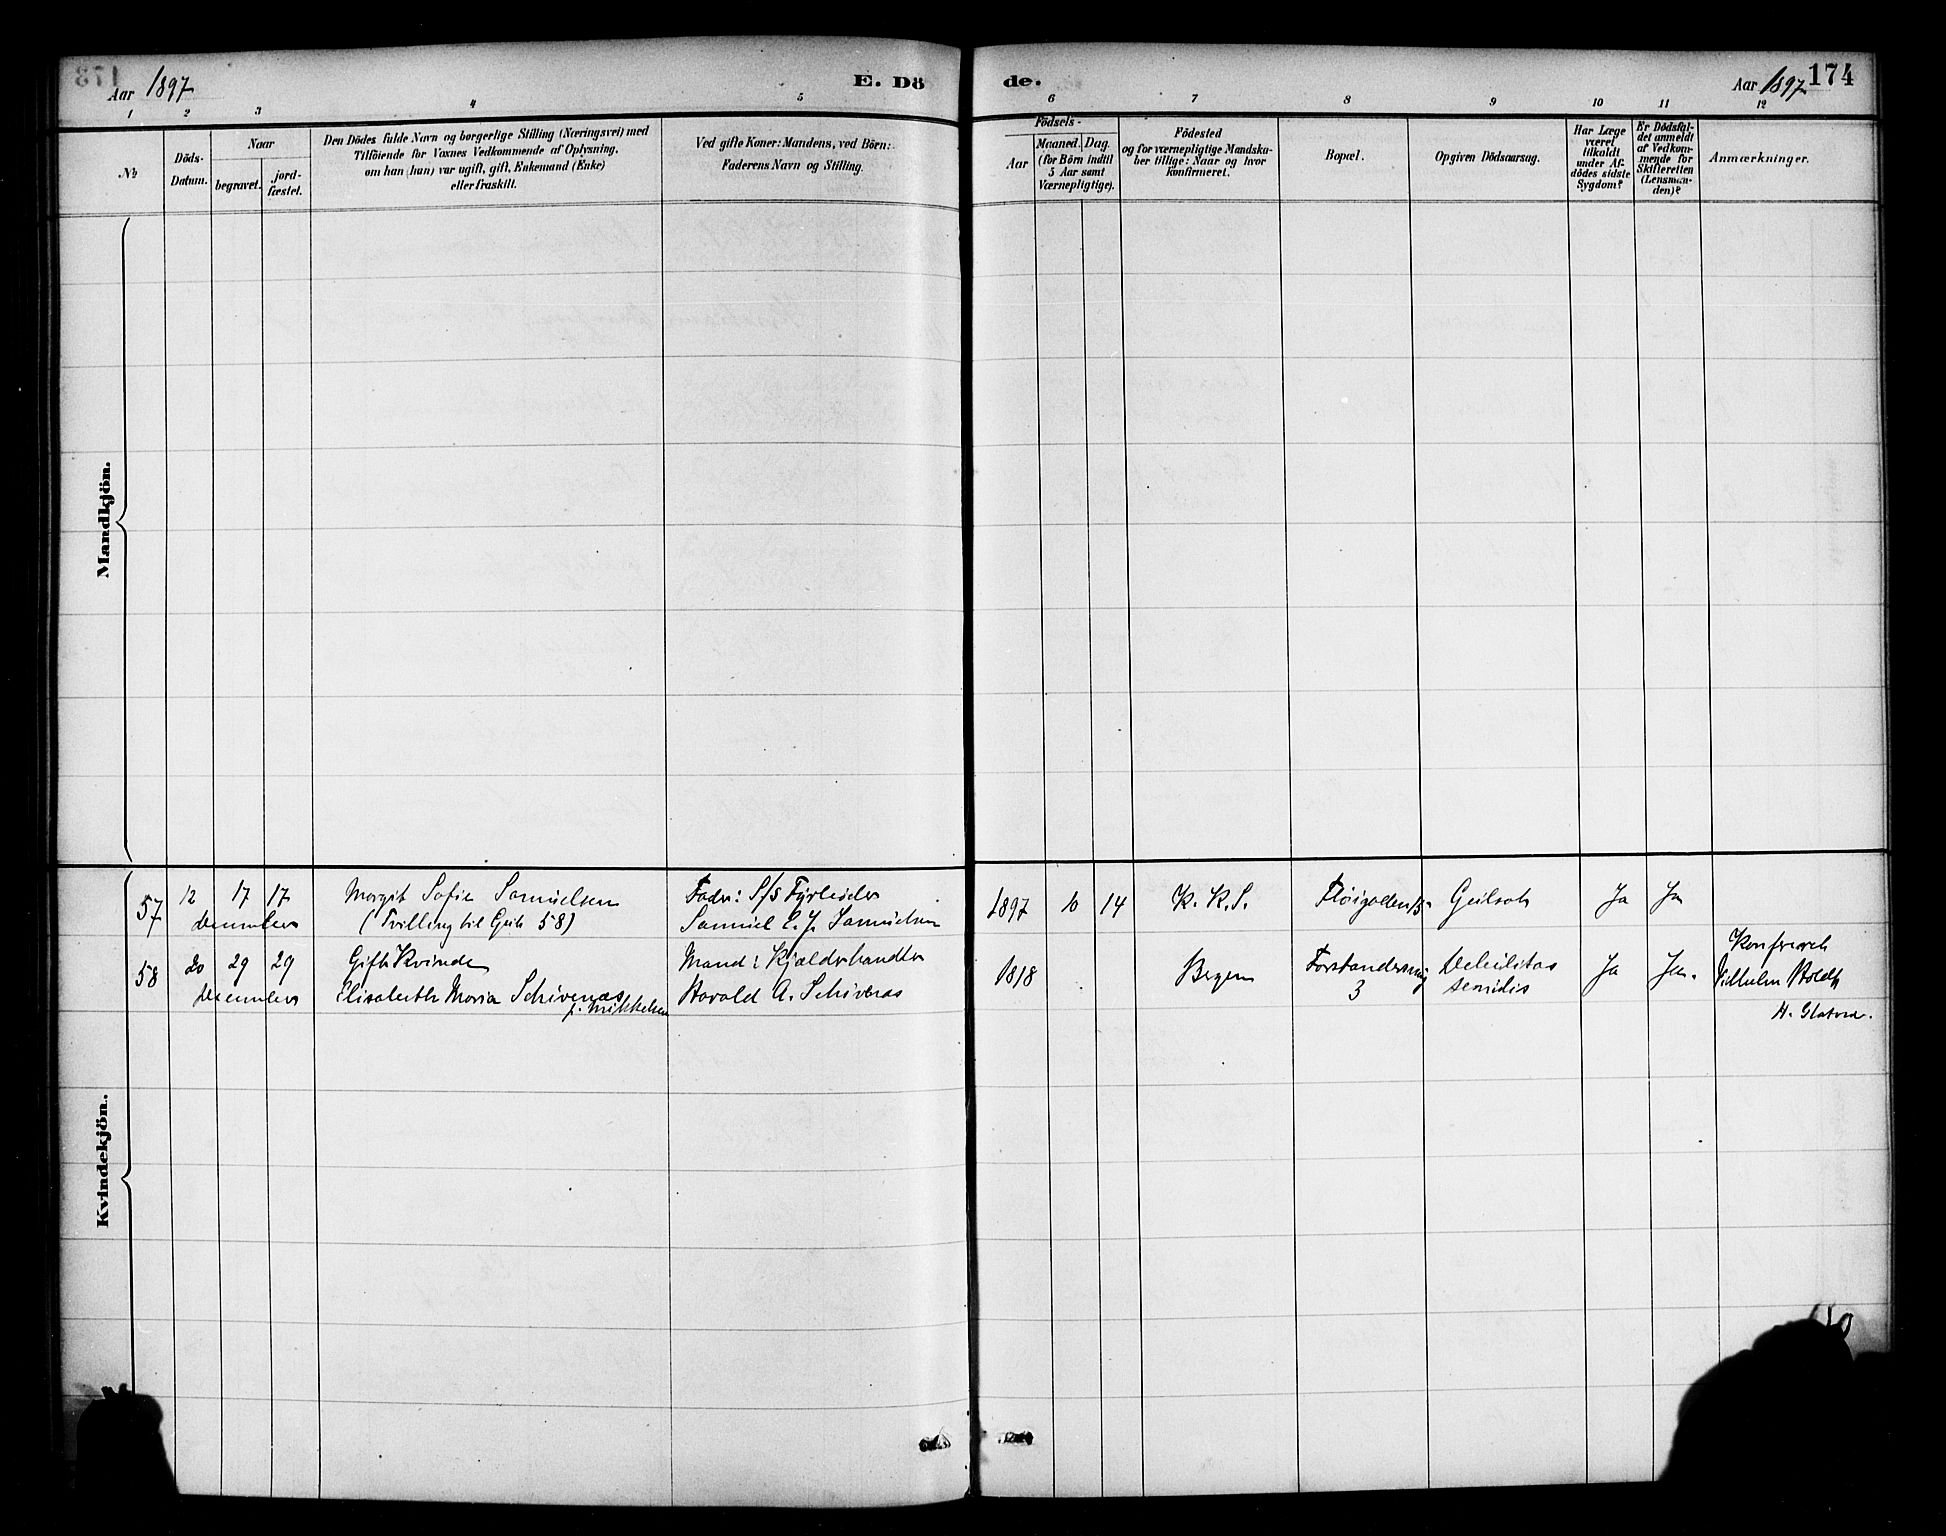 173
Aar 1897
E. Dö
de.
Aar 1897
174
1 2 3 4 5 6 7 8 9 10 11 12
№
Döds-
Datum.
Naar
begravet.
jord-
fæstet.
Den Dödes fulde Navn og borgerlige Stilling (Næringsvei) med
Tilföiende for Voxnes Vedkommende af Oplysning,
om han (hun) var ugift, gift, Enkemand (Enke)
eller fraskilt.
Ved gifte Koner: Mandens, ved Börn:
Faderens Navn og Stilling.
Födsels-
Aar
Maaned.
Dag.
(for Börn indtil
5 Aar samt
Værnepligtige).
Födested
og for værnepligtige Mandska-
ber tillige: Naar og hvor
konfirmeret.
Bopæl.
Opgiven Dödsaarsag.
Har Læge
været
tilkaldt
under Af-
dödes sidste
Sygdom?
Er Dödsfal-
det anmeldt
af Vedkom-
mende for
Skifteretten
(Lensman-
den)?
Anmærkninger.
Mandkjön.
Kvindekjön.
57 12 17 17 Margit Sofie Samuelsen Fader: S/S Fyrbøder 1897 10 14 K. K. S. Ja Ja
December (Tvilling til 58) Samuel Samuelsen
58 20 29 29 Gift Kvinde Mand: Kjælderhandler 1818 Bergen Debilitas Ja Ja.
December Elisabeth Maria Harald A. 3 senilis
f. Mikkelsen
Vilhelm